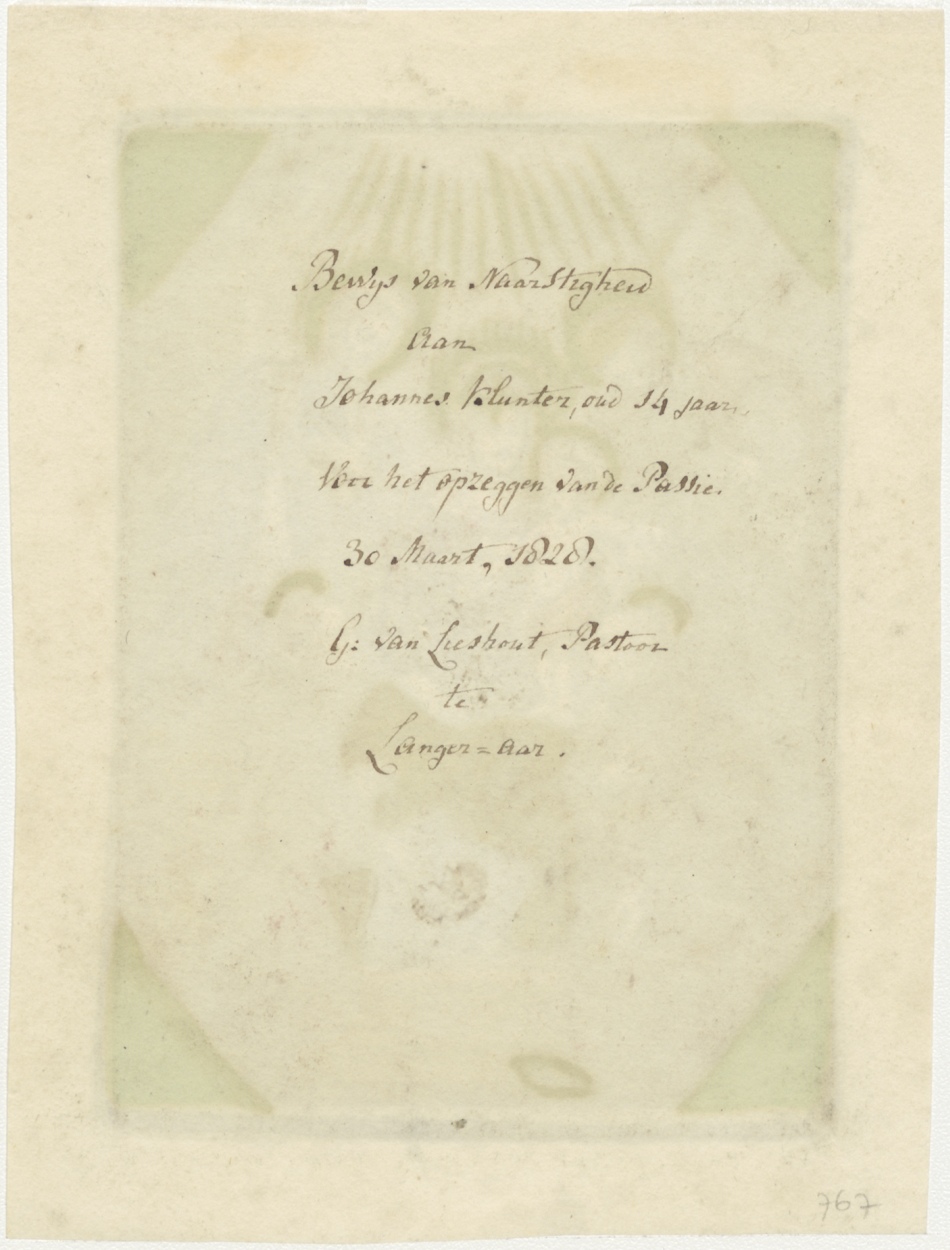 Bewys van Naarstigheid
Aan
Johannes Klunter, oud 14 jaar.
Voor het opzeggen van de Passie.
30 Maart, 1828.
G: van Lieshout, Pastoor
te
Langer=aar.
767